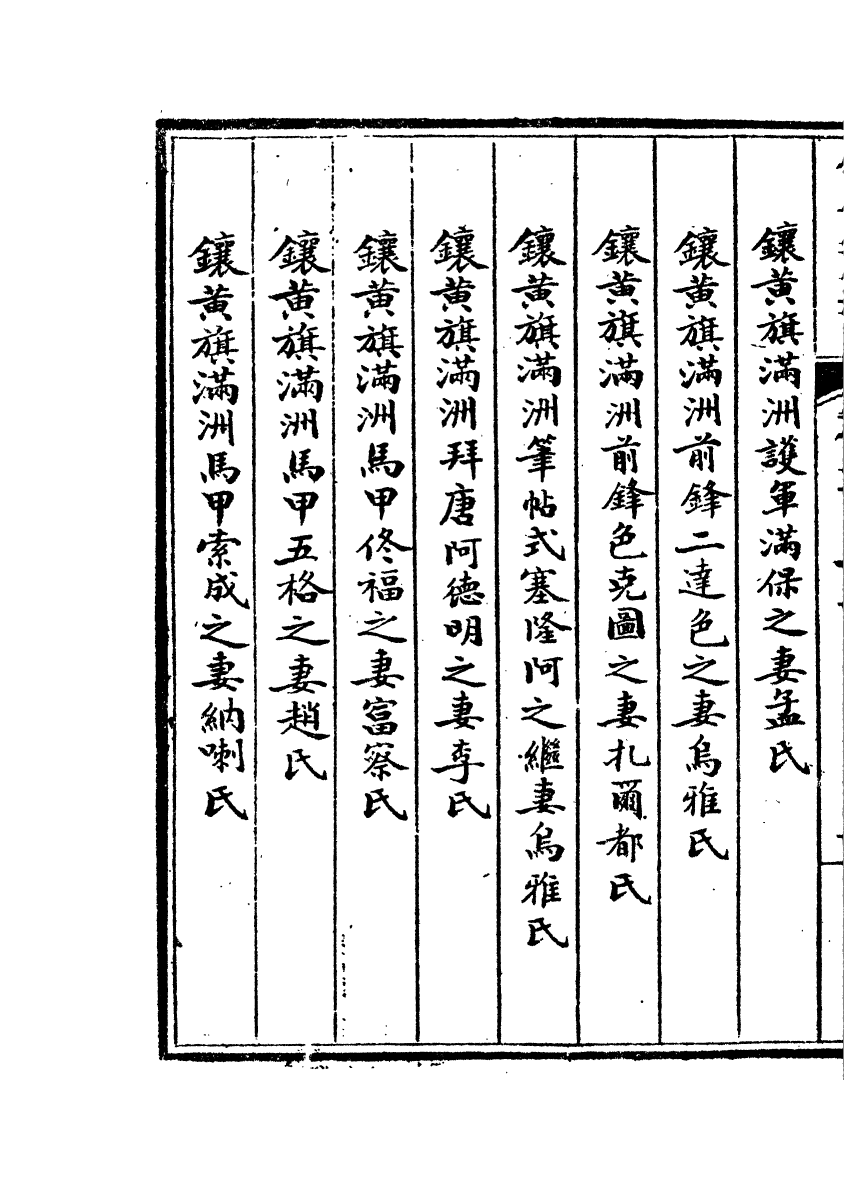 鑲黃旗滿洲護軍滿保之妻孟氏
鑲黃旗滿洲前鋒二達色之妻烏雅氏
鑲黃旗滿洲前鋒色克圖之妻扎爾都氏
鑲黃旗滿洲筆帖式塞隆阿之繼妻烏雅氏
鑲黃旗滿洲拜唐阿德明之妻李氏
鑲黃旗滿洲馬甲佟福之妻富察氏
鑲黃旗滿洲馬甲五格之妻趙氏
鑲黃旗滿洲馬甲索成之妻納喇氏